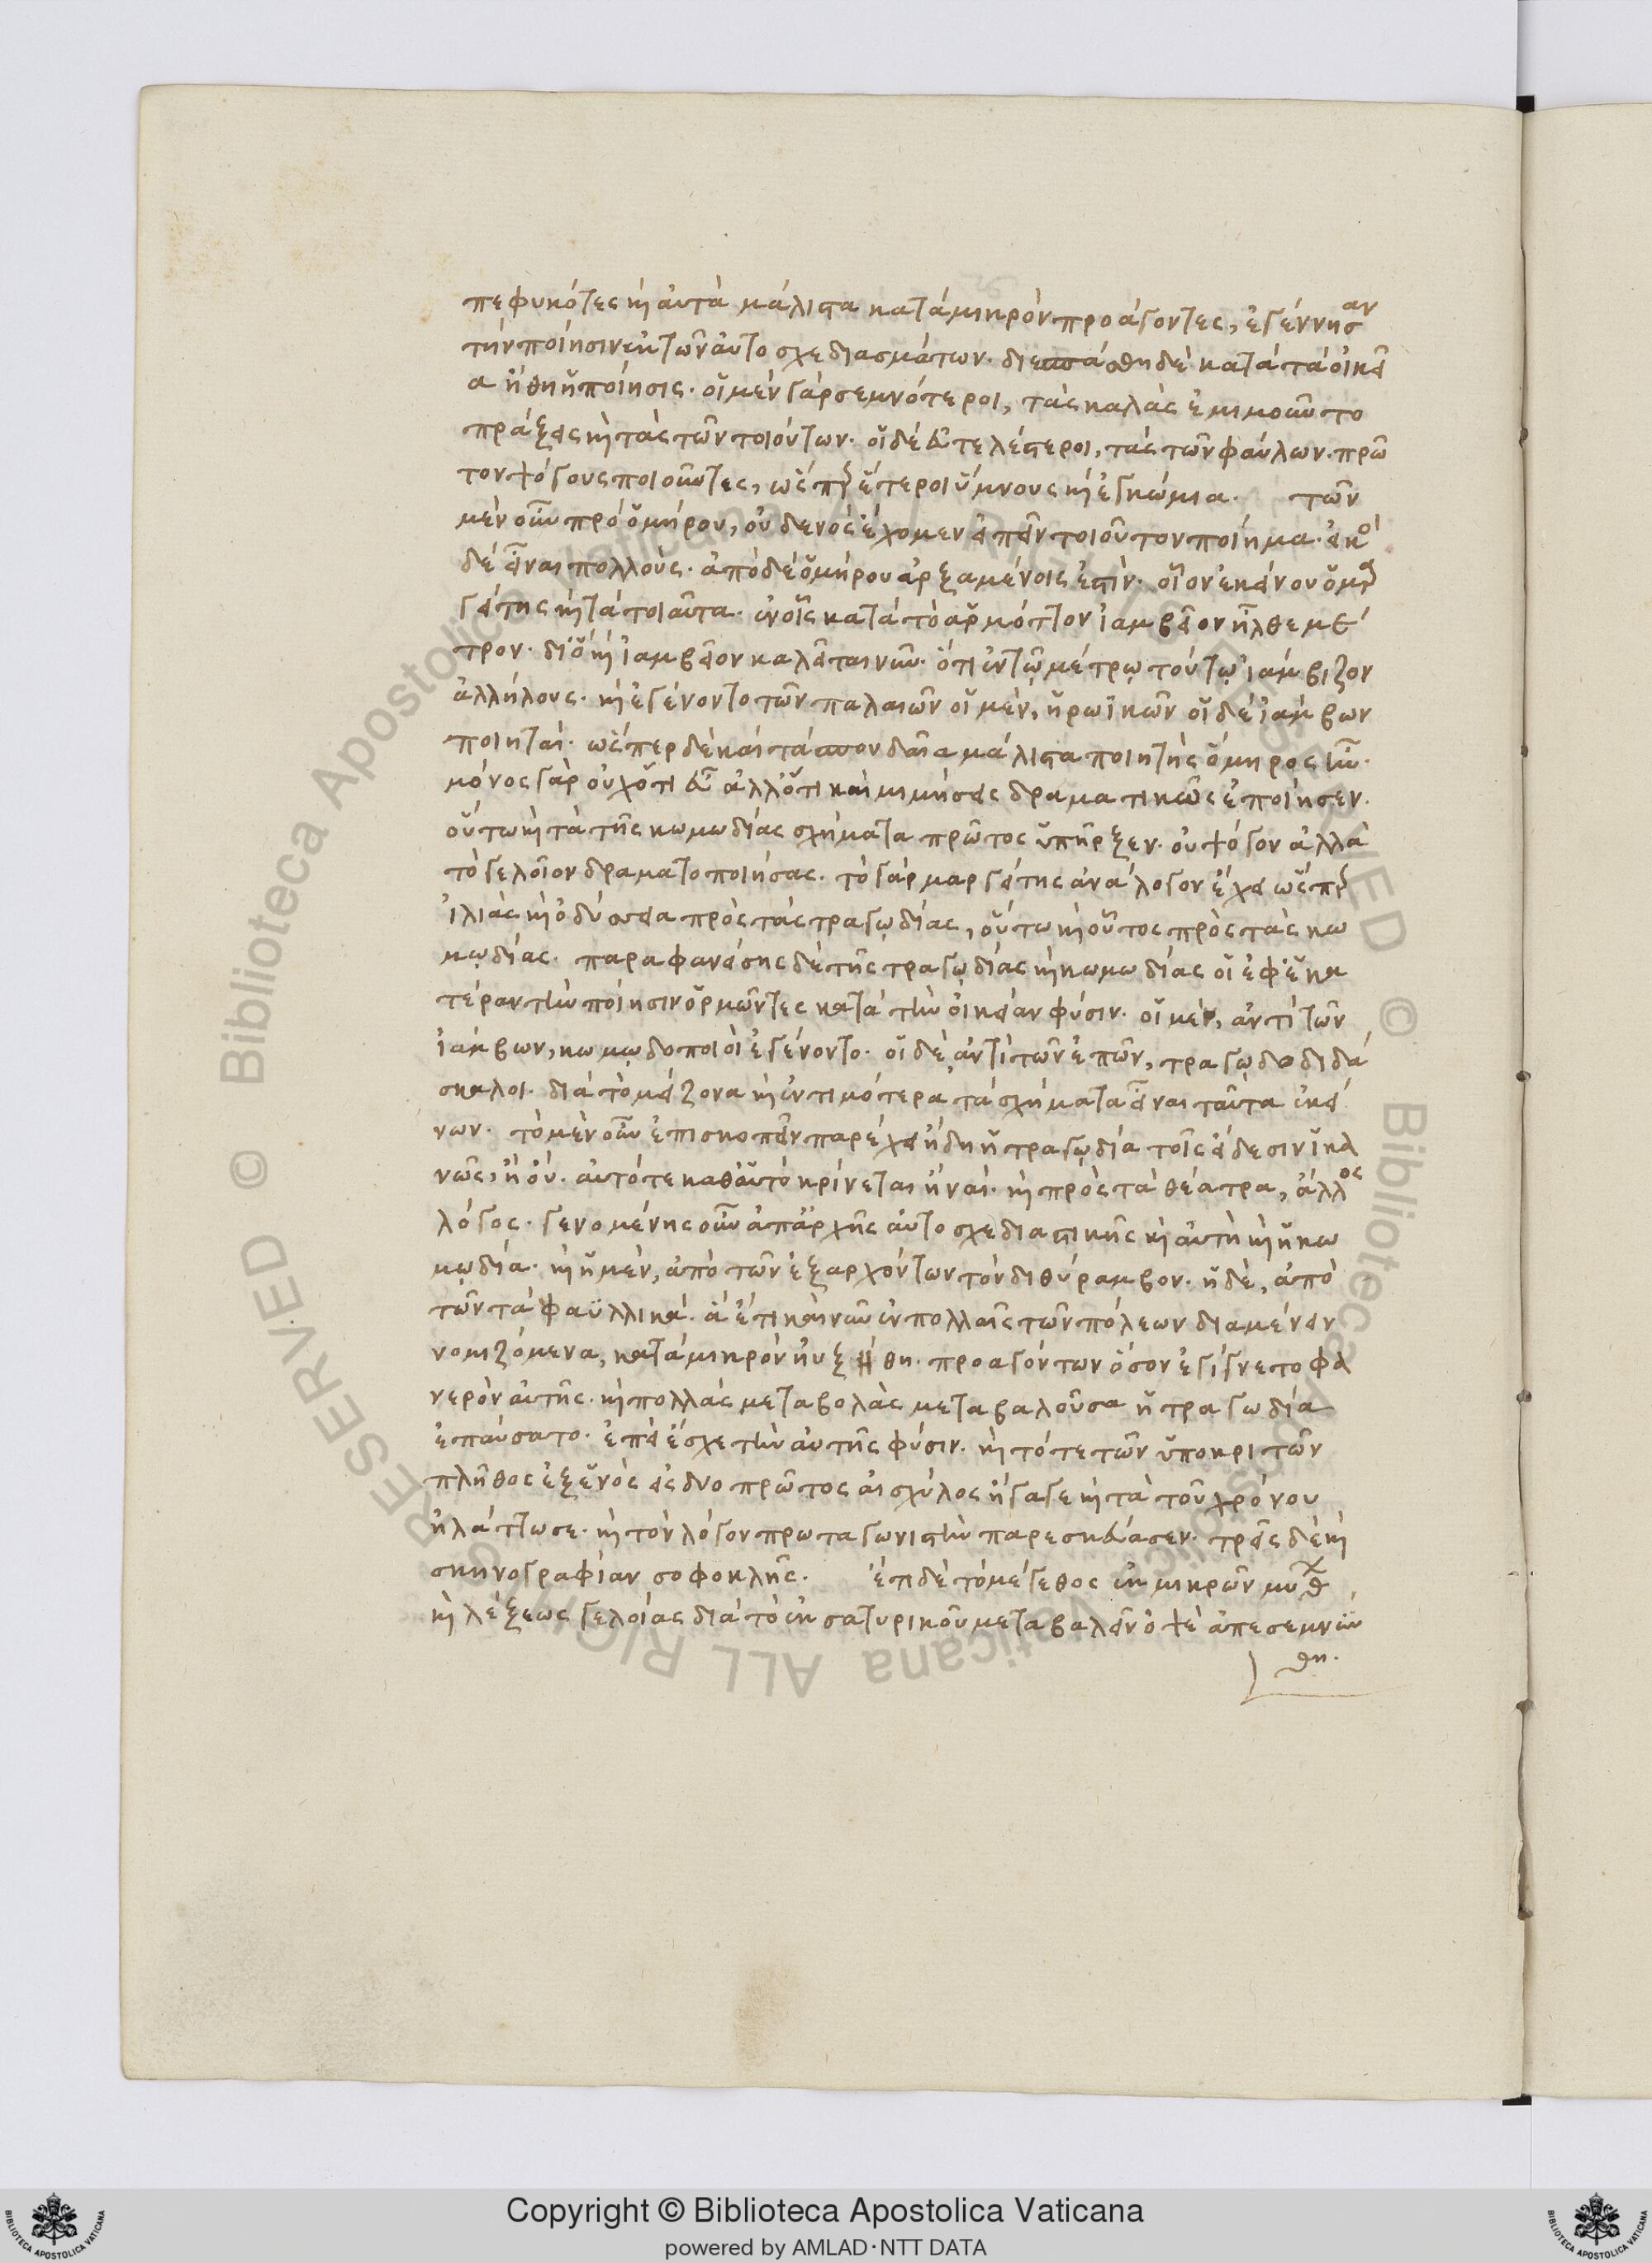 πεφυκότες κ̀ αὐτὰ μάλιστα κατὰ μικρὸν προάγοντες, ἐγέννησαν
τὴν ποίησιν ἐκ τῶν αὐτοσχεδιασμάτων· διεσπάσθη δὲ κατὰ τὰ οἰκεῖ
α ἤθη ἡ ποίησις· οἱ μὲν γὰρ σεμνότεροι, τὰς καλὰς ἐμιμοῦντο
πράξεις κ̀ τὰς τῶν τοιούτων· οἱ δὲ εὐτελέστεροι, τὰς τῶν φαύλων· πρῶ
τον ψόγους ποιοῦντες, ὥσπερ ἕτεροι ὕμνους κ̀ ἐγκώμια· τῶν
μὲν οὖν πρὸ ὁμήρου, οὐδενὸς ἔχομεν εἰπεῖν τοιοῦτον ποίημα· εἰκὸ
δὲ εἶναι πολλούς· ἀπὸ δὲ ὁμήρου ἀρξαμένοις ἐστίν· οἷον ἐκείνου ὁ μαρ
γείτης κ̀ τὰ τοιαῦτα· ἐν οἷς κατὰ τὸ ἁρμόττον ἰαμβεῖον ἦλθε μέ
τρον· διὸ κ̀ ἰαμβεῖον καλεῖται νῦν· ὅτι ἐν τῷ μέτρῳ τούτῳ ἰάμβιζον
ἀλλήλους· κ̀ ἐγένοντο τῶν παλαιῶν οἱ μὲν, ἡρωϊκῶν οἱ δὲ ἰάμβων
ποιηταί· ὥσπερ δὲ καὶ τὰ σπουδαῖα μάλιστα ποιητὴς ὅμηρος ἦν·
μόνος γὰρ οὐχ ὅτι εὖ ἀλλ' ὅτι καὶ μιμήσεις δραματικῶς ἐποίησεν·
οὕτω κ̀ τὰ τῆς κωμωδίας σχήματα πρῶτος ὑπῆρξεν· οὐ ψόγον ἀλλὰ
τὸ γελοῖον δραματοποιήσας· τὸ γὰρ μαργείτης ἀνάλογον ἔχει ὥσπερ
ἰλιὰς κ̀ ὀδύσσεια πρὸς τὰς τραγῳδίας, οὕτω κ̀ οὗτος πρὸς τὰς κω
μῳδίας· παραφανείσης δὲ τῆς τραγῳδίας κ̀ κωμωδίας οἱ ἐφ' ἑκα
τέραν τὴν ποίησιν ὁρμῶντες κατὰ τὴν οἰκείαν φύσιν· οἱ μὲν, ἀντὶ τῶν
ἰάμβων, κωμῳδοποιοὶ ἐγένοντο· οἱ δὲ ἀντὶ τῶν ἐπῶν, τραγῳδοδιδά
σκαλοι· διὰ τὸ μείζονα κ̀ ἐντιμότερα τὰ σχήματα εἶναι ταῦτα ἐκεί
νων· τὸ μὲν οὖν ἐπισκοπεῖν παρέχει ἤδη ἡ τραγῳδία τοῖς εἴδεσιν ἱκα
νῶς, ἢ οὔ· αὐτό τε καθ' αὑτὸ κρίνεται ἢ ναί· κ̀ πρὸς τὰ θέατρα, ἄλλος
λόγος· γενομένης οὖν ἀπ' ἀρχῆς αὐτοσχεδιαστικῆς κ̀ αὐτὴ κ̀ ἡ κω
μῳδία· κ̀ ἡ μὲν, ἀπὸ τῶν ἐξαρχόντων τὸν διθύραμβον· ἡ δὲ, ἀπὸ
τῶν τὰ φαϋλλικὰ· ἃ ἔτι καὶ νῦν ἐν πολλαῖς τῶν πόλεων διαμένειν
νομιζόμενα, κατὰ μικρὸν ηὐξήθη· προαγόντων ὅσον ἐγίγνετο φα
νερὸν αὐτῆς· κ̀ πολλὰς μεταβολὰς μεταβαλοῦσα ἡ τραγωδία
ἐπαύσατο· ἐπεὶ ἔσχε τὴν αὑτῆς φύσιν· κ̀ τό τε τῶν ὑποκριτῶν
πλῆθος ἐξ ἑνὸς εἰς δυο πρῶτος αἰσχύλος ἤγαγε κ̀ τὰ τοῦ χρόνου
ἠλάττωσε· κ̀ τὸν λόγον πρωταγωνιστὴν παρεσκεύασεν· τρεῖς δὲ κ̀
σκηνογραφίαν σοφοκλῆς· ἔτι δὲ τὸ μέγεθος ἐκ μικρῶν μύθ
κ̀ λέξεως γελοίας διὰ τὸ ἐκ σατυρικοῦ μεταβαλεῖν ὀψὲ ἀπεσεμνύν
θη·